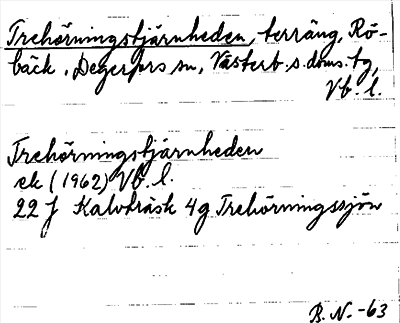 Trehörningstjärnheden, terräng, Rö-
bäck, Degerfors sn, Västerb. s. doms. tg,
Vb. l.
Trehörningstjärnheden
ek (1962) Vb. l.
22 J Kalvträsk 4g Trehörningssjön
B. N. -63